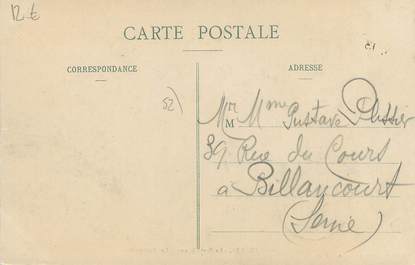 12 €
CARTE POSTALE
CORRESPONDANCE
ADRESSE
52)
Mr Mme Gustave
M
39 Rue du Cours
à Billancourt
(Seine)